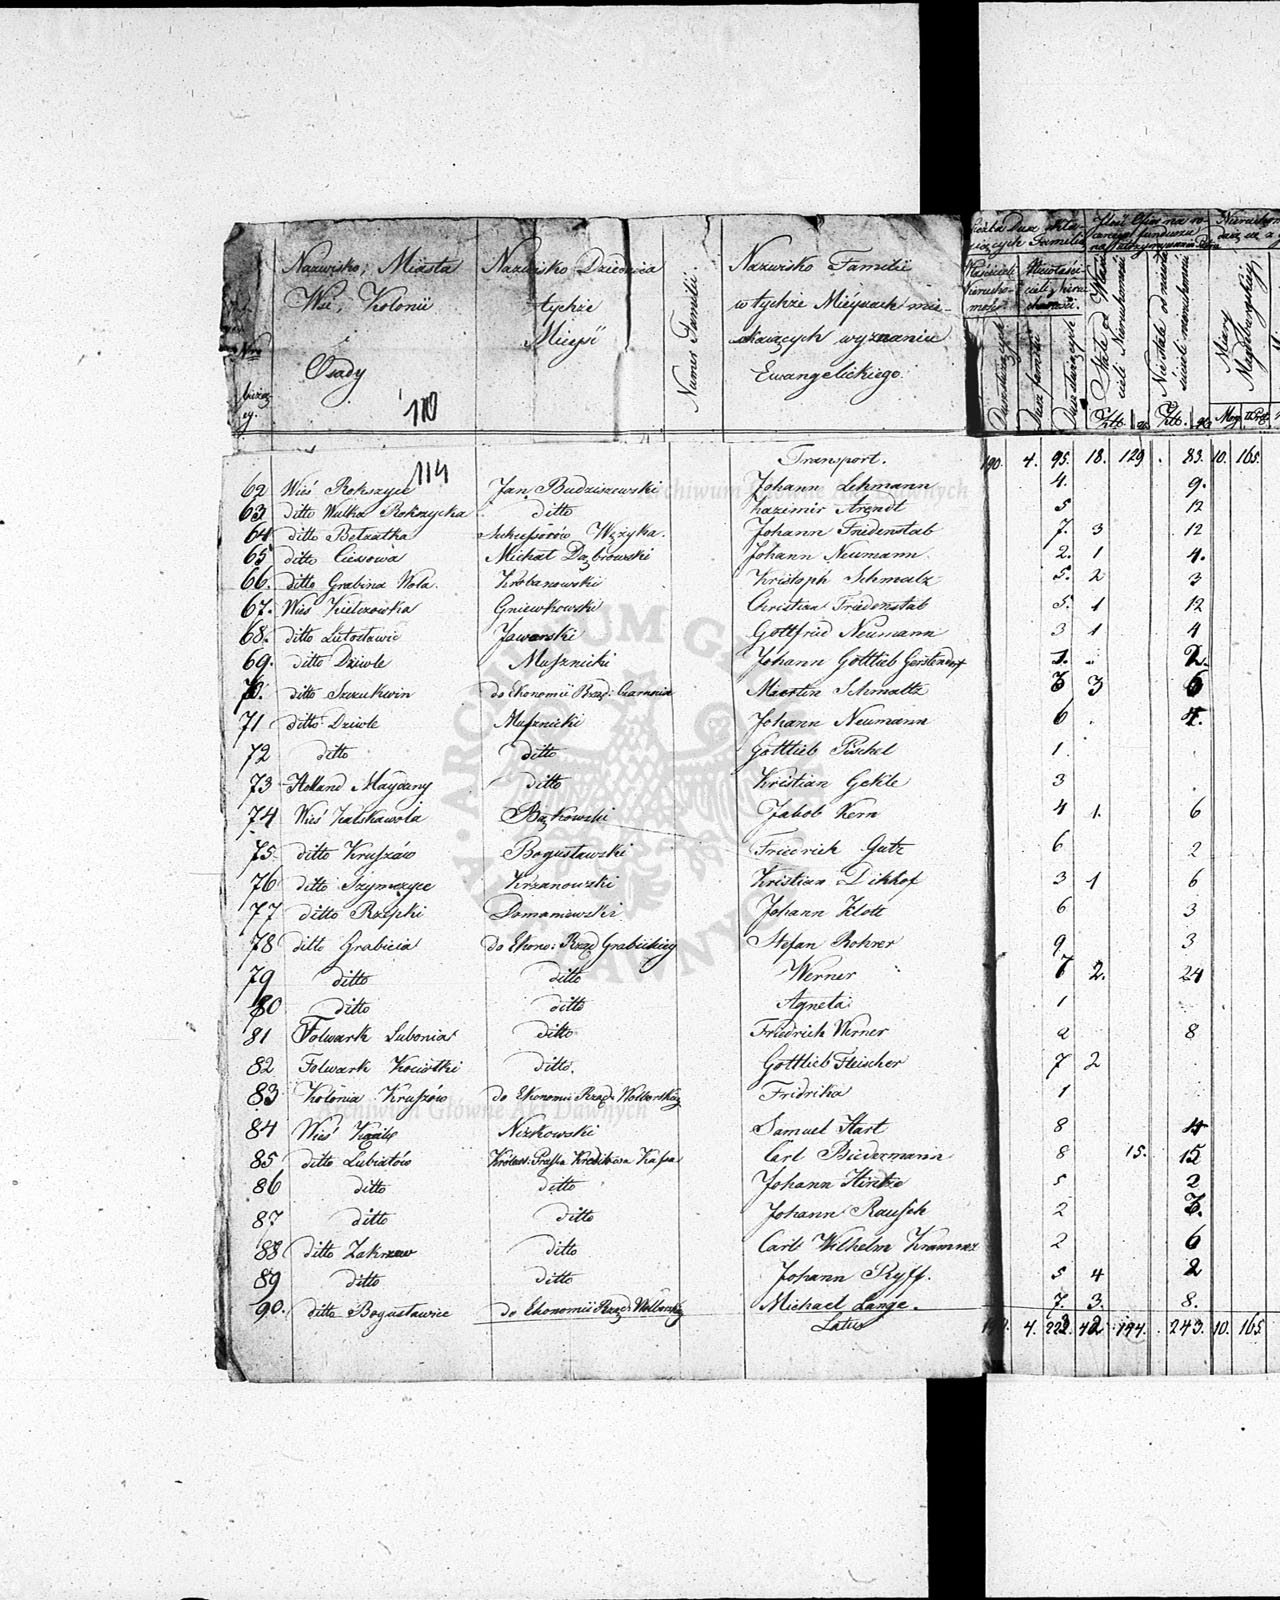 Nazwisko, Miasta Nazwisko Dziedzica Nazwisko Familii
Wsi, Kolonii tychże w tychże Mieyscach mie-
Mieysc szkaiących wyznania
Osady Ewangelickiego.
Numer Familii.
bieżą-
cy.
110
114
Dusz familii
Mórg
Miary Magdeburskiéy
Transport. 190. 4. 95. 18. 129. 83. 10. 165.
62 Wieś Rokszyce Jan Budziszewski Johann Lehmann 4. 9.
63 ditto Wulka Rokszycka ditto Kazimir Arendt 5 12
64 ditto Betzatka Sukcessorów Wężyka. Johann Friedenstab 7. 3 12
65 ditto Ciesowa Michał Dąbrowski Johann Neumann. 2. 1 4.
66. ditto Grabina Wola. Krobanowski Kristoph Schmalz 5. 2 3
67. Wieś Kielczowka Gniewkowski Christian Friedenstab 5. 1 12
68. ditto Lutosławic Jaworski Gottfried Neumann 3 1 4
69. ditto Dziwle Muſznicki Johann Gottlieb Gerstendorf 1. 2.
70. ditto Szczukwin do Ekonomii Rząd: Czarnocin Martin Schmaltz 3 3 6
71 ditto Dziwle Muſznicki Johann Neumann 6 . 4.
72 ditto ditto Gottlieb Pischel 1.
73 Holland Maydany ditto Kristian Gekle 3
74 Wieś Kalskawola Bąkowski Jakob Kern 4 1. 6
75. ditto Kruſzów Bogusławski Friedrich Gutz 6 2
76 ditto Szymczyce Krzanowski Kristian Dikhof 3 1 6
77 ditto Rzepki Domaniewski Johann Klott 6 3
78 ditto Grabicia do Ekono: Rząd Grabickiey Stefan Rohrer 9 3
79 ditto ditto Werner 7 2. 24
80 ditto ditto Agneta 1
81 Folwark Lubonia ditto Friedrich Werner 2 8
82 Folwark Kociołki ditto. Gottlieb Fleischer 7 2
83 Kolonia Kruſzów do Ekonomii Rząd: Wolborskiey Fridrika 1
84 Wieś Niżkowski Samuel Hart 8 4
85 ditto Lubiatów Królew: Pruſka Kreditowa Kaſsa Carl Biedermann 8 15. 15
86 ditto ditto Johann Hintze 5 2
87 ditto ditto Johann Rauſch 2 3.
88 ditto Zakrzew ditto Carl Wilhelm Krammer 2 6
89 ditto ditto Johann Ryff. 5 4 2
90. ditto Bogusławice do Ekonomii Rząd: Wolborskiey Michael Lange. 7. 3. 8.
Latus 190. 4. 222. 42 144. 243. 10. 165
Archiwum Główne Akt Dawnych
Archiwum Główne Akt Dawnych